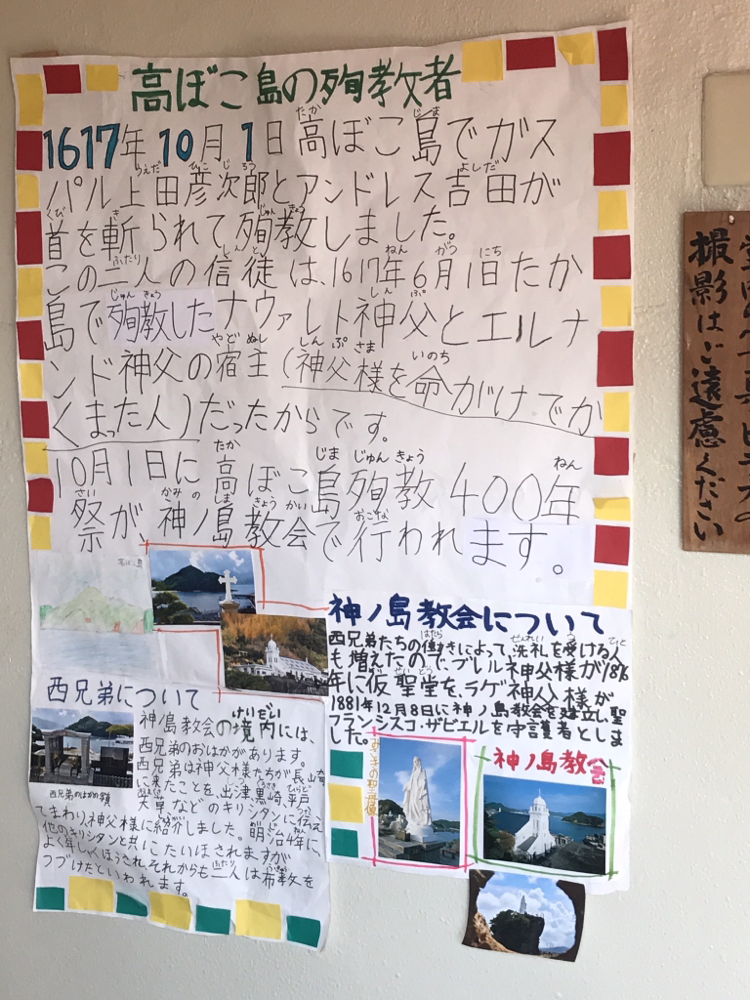 高ぼこ島の殉教者
1617年10月1日高ぼこ島でガス
パル上田彦次郎とアンドレス吉田が
首を斬られて殉教しました。
この二人の信徒は、1617年6月1日たか
島で殉教したナヴァレト神父とエルナ
ンド神父の宿主(神父様を命がけでか
くまった人)だったからです。
10月1日に高ぼこ島殉教400年
祭が、神ノ島教会で行われます。
高ぼこ島
神ノ島教会について
西兄弟たちの働きによって、洗礼を受ける人
も増えたので、ブレル神父様が1876
年に仮聖堂を、ラゲ神父様が
1881年12月8日に神ノ島教会を建立し、聖
フランシスコ・ザビエルを守護者としま
した。
西兄弟について
神ノ島教会の境内には、
西兄弟のおはかがあります。
西兄弟は神父様たちが長崎
に来たことを、出津、黒崎、平戸
天草などのキリシタンに伝え
てまわり神父様に紹介しました。明治4年に、
他のキリシタンと共にたいほされますが
つづけたといわれます。
西兄弟のはかの碑
みさきの聖母像
神ノ島教会
撮影はご遠慮ください